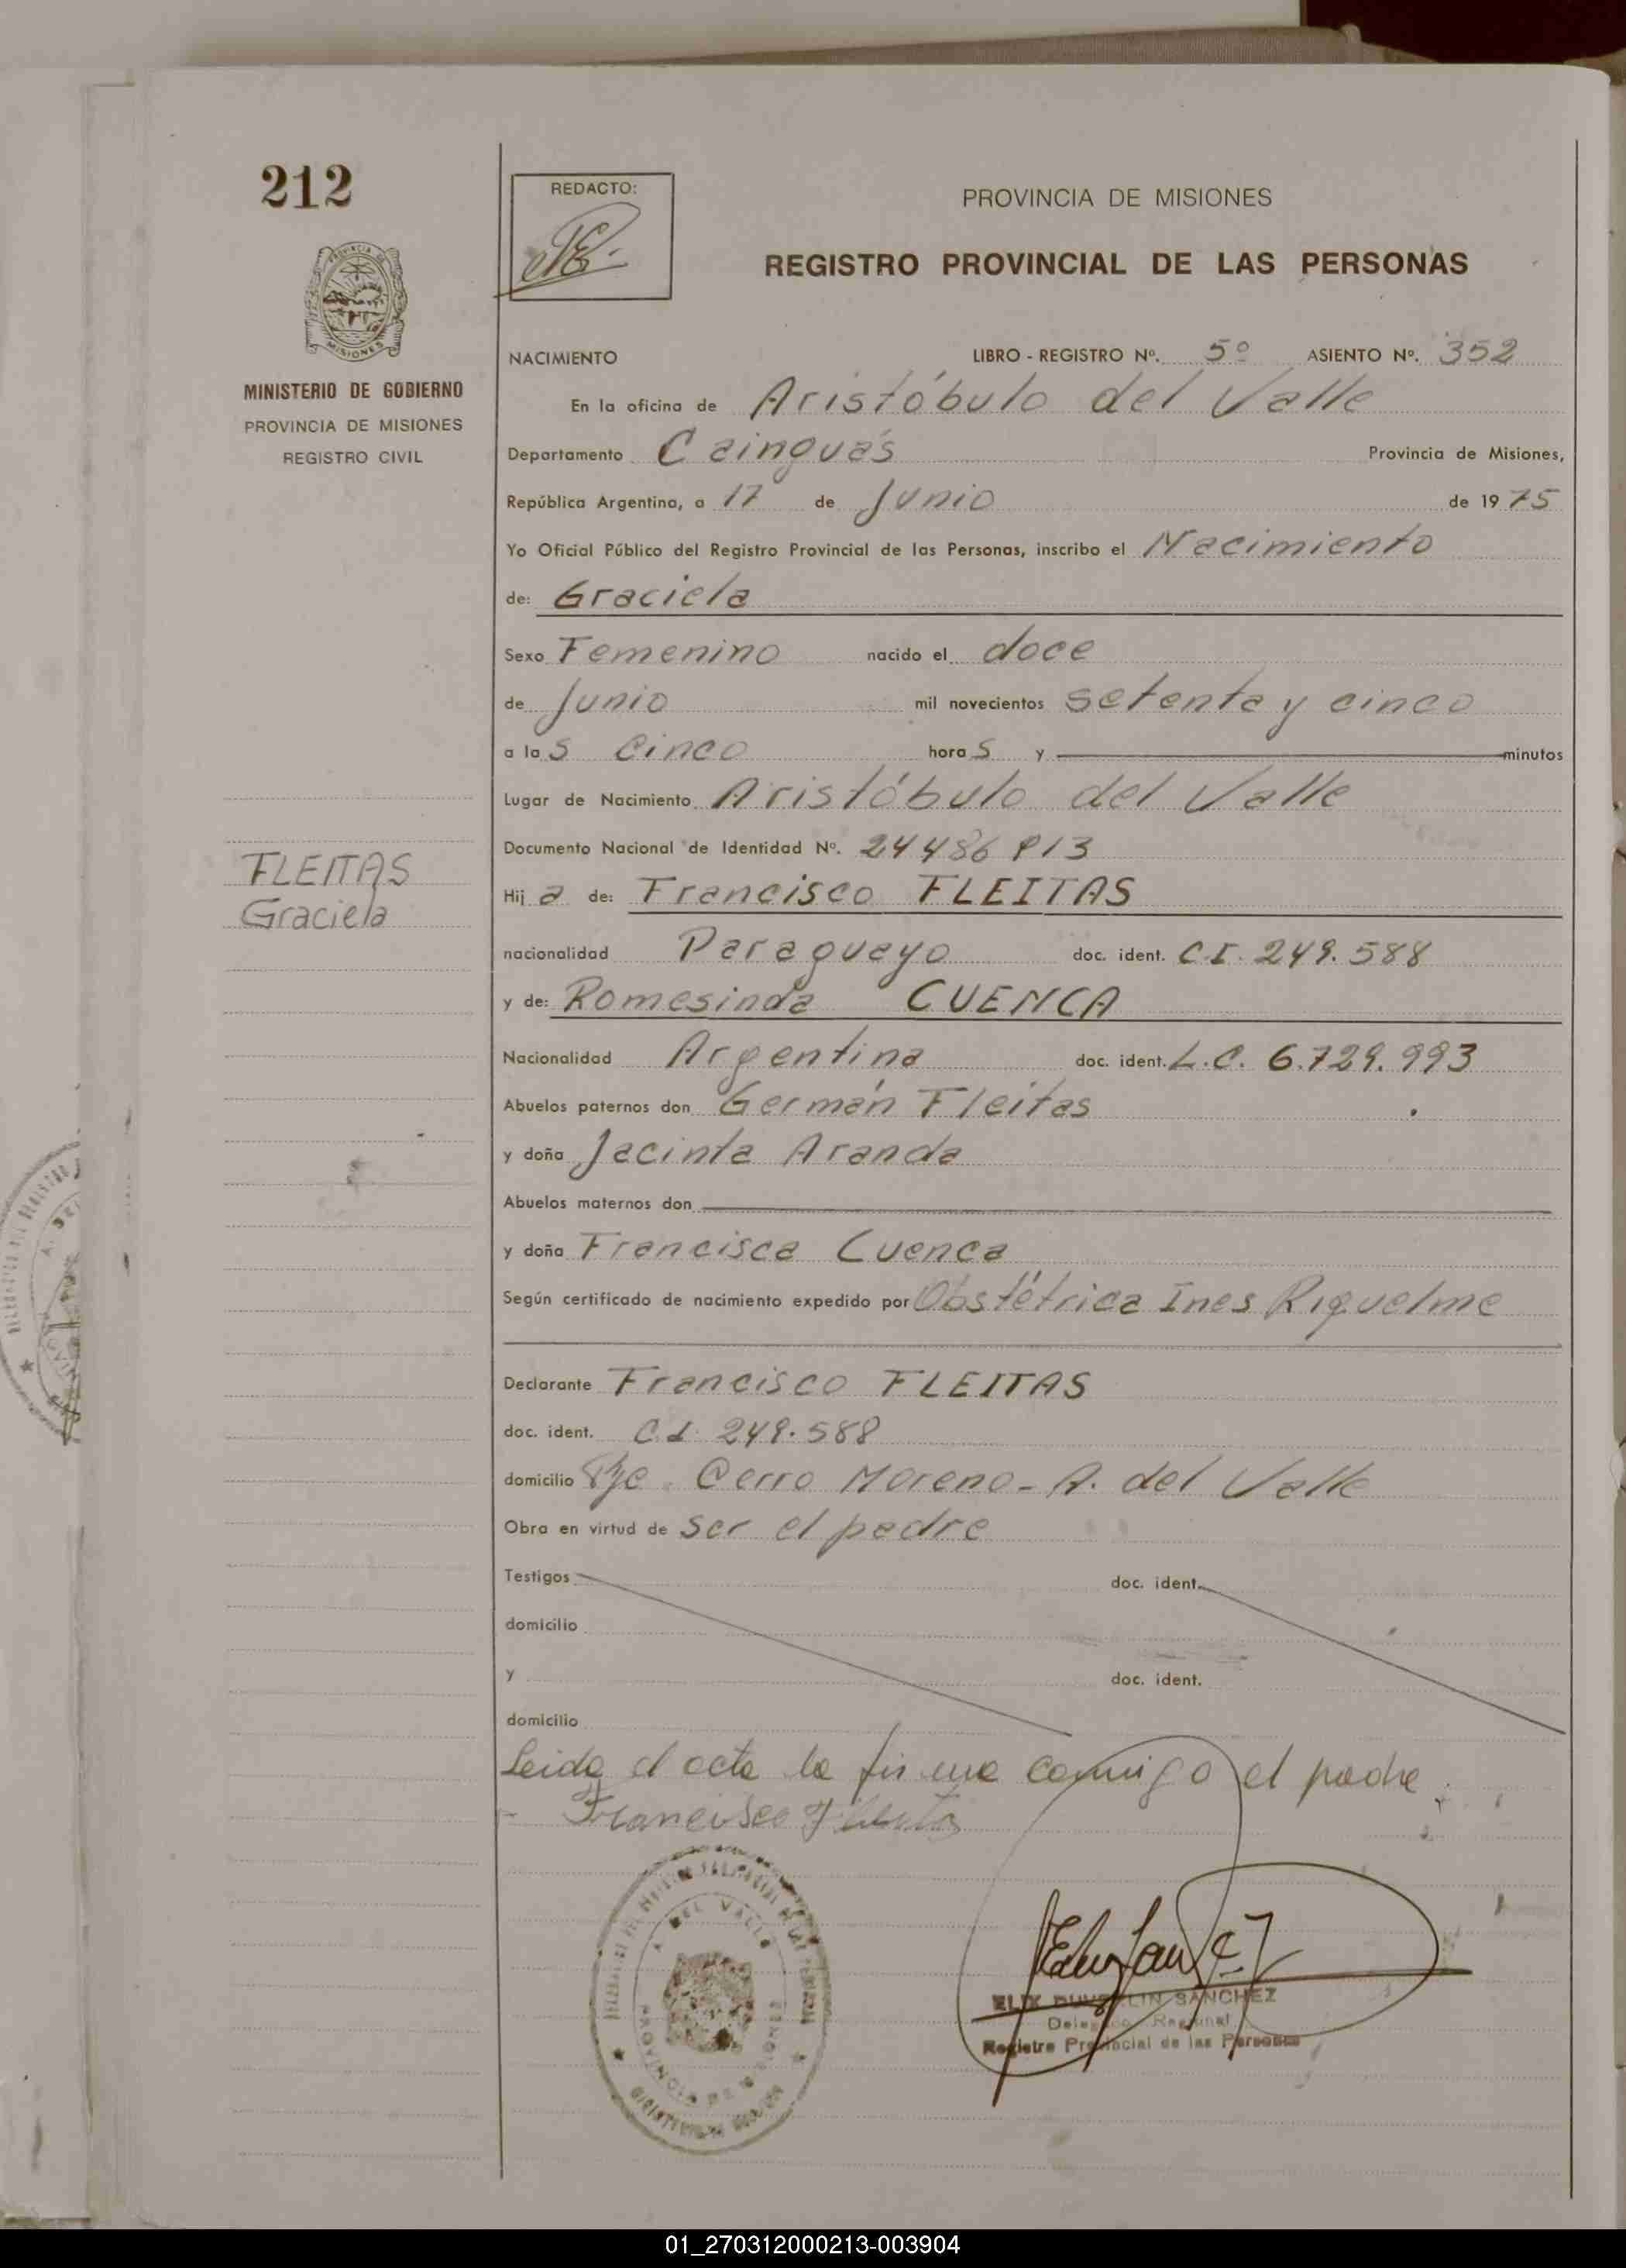 212
REDACTO:
PROVINCIA DE MISIONES
REGISTRO PROVINCIAL DE LAS PERSONAS
MISIONES
MINISTERIO DE GOBIERNO
PROVINCIA DE MISIONES
REGISTRO CIVIL
NACIMIENTO LIBRO - REGISTRO Nº. 5º ASIENTO Nº. 352
En la oficina de Aristóbulo del Valle
Departamento Cainguás Provincia de Misiones,
República Argentina, a 17 de Junio de 1975
Yo Oficial Público del Registro Provincial de las Personas, inscribo el Nacimiento
de: Graciela
Sexo Femenino nacido el doce
de Junio mil novecientos setenta y cinco
a las cinco horas y minutos
Lugar de Nacimiento Aristóbulo del Valle
Documento Nacional de Identidad Nº. 24486813
FLEITAS
Graciela
Hija de: Francisco FLEITAS
nacionalidad Paraguayo doc. ident. C.I. 249.588
y de: Romesinda CUENCA
Nacionalidad Argentina doc. ident. L.C. 6.729.993
Abuelos paternos don Germán Fleitas
y doña Jacinta Aranda
Abuelos maternos don
y doña Francisca Cuenca
Según certificado de nacimiento expedido por Obstétrica Ines Riquelme
Declarante Francisco FLEITAS
doc. ident. C.I. 249.588
domicilio Pje. Cerro Moreno - A. del Valle
Obra en virtud de ser el padre
Testigos doc. ident.
domicilio
y doc. ident.
domicilio
Leida el acta la firma conmigo el padre.
Francisco Fleitas
A. DEL VALLE
PROVINCIA DE MISIONES
SANCHEZ
Registro Provincial de las Personas
01_270312000213-003904